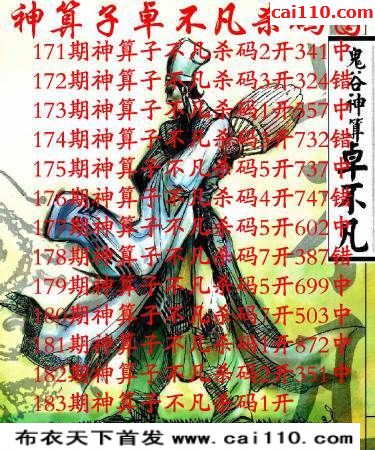 cai110.com
神算子卓不凡杀码图
171期神算子不凡杀码2开341中
172期神算子不凡杀码3开324错
173期神算子不凡杀码1开357中
174期神算子不凡杀码1开732错
175期神算子不凡杀码5开737中
176期神算子不凡杀码4开747错
177期神算子不凡杀码5开602中
178期神算子不凡杀码7开387错
179期神算子不凡杀码5开699中
180期神算子不凡杀码7开503中
181期神算子不凡杀码1开872中
182期神算子不凡杀码2开351中
183期神算子不凡杀码1开
鬼谷神算
卓不凡
布衣天下首发 www.cai110.com